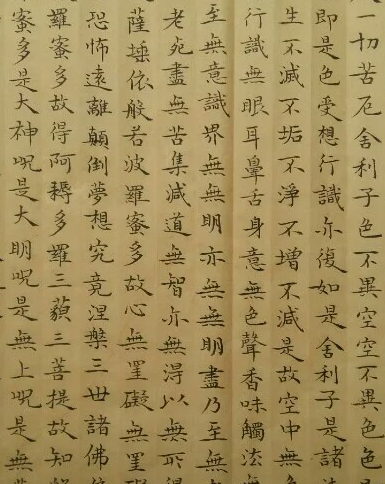 一切苦厄舍利子色不異空空不異色色
即是色受想行識亦復如是舍利子是諸
生不滅不垢不淨不增不減是故空中無
行識無眼耳鼻舌身意無色聲香味觸法無
至無意識界無無明亦無無明盡乃至無
老死盡無苦集滅道無智亦無得以無所得
薩埵依般若波羅蜜多故心無罣礙無罣
恐怖遠離顛倒夢想究竟涅槃三世諸佛
羅蜜多故得阿耨多羅三藐三菩提故知
蜜多是大神呪是大明呪是無上呪是無